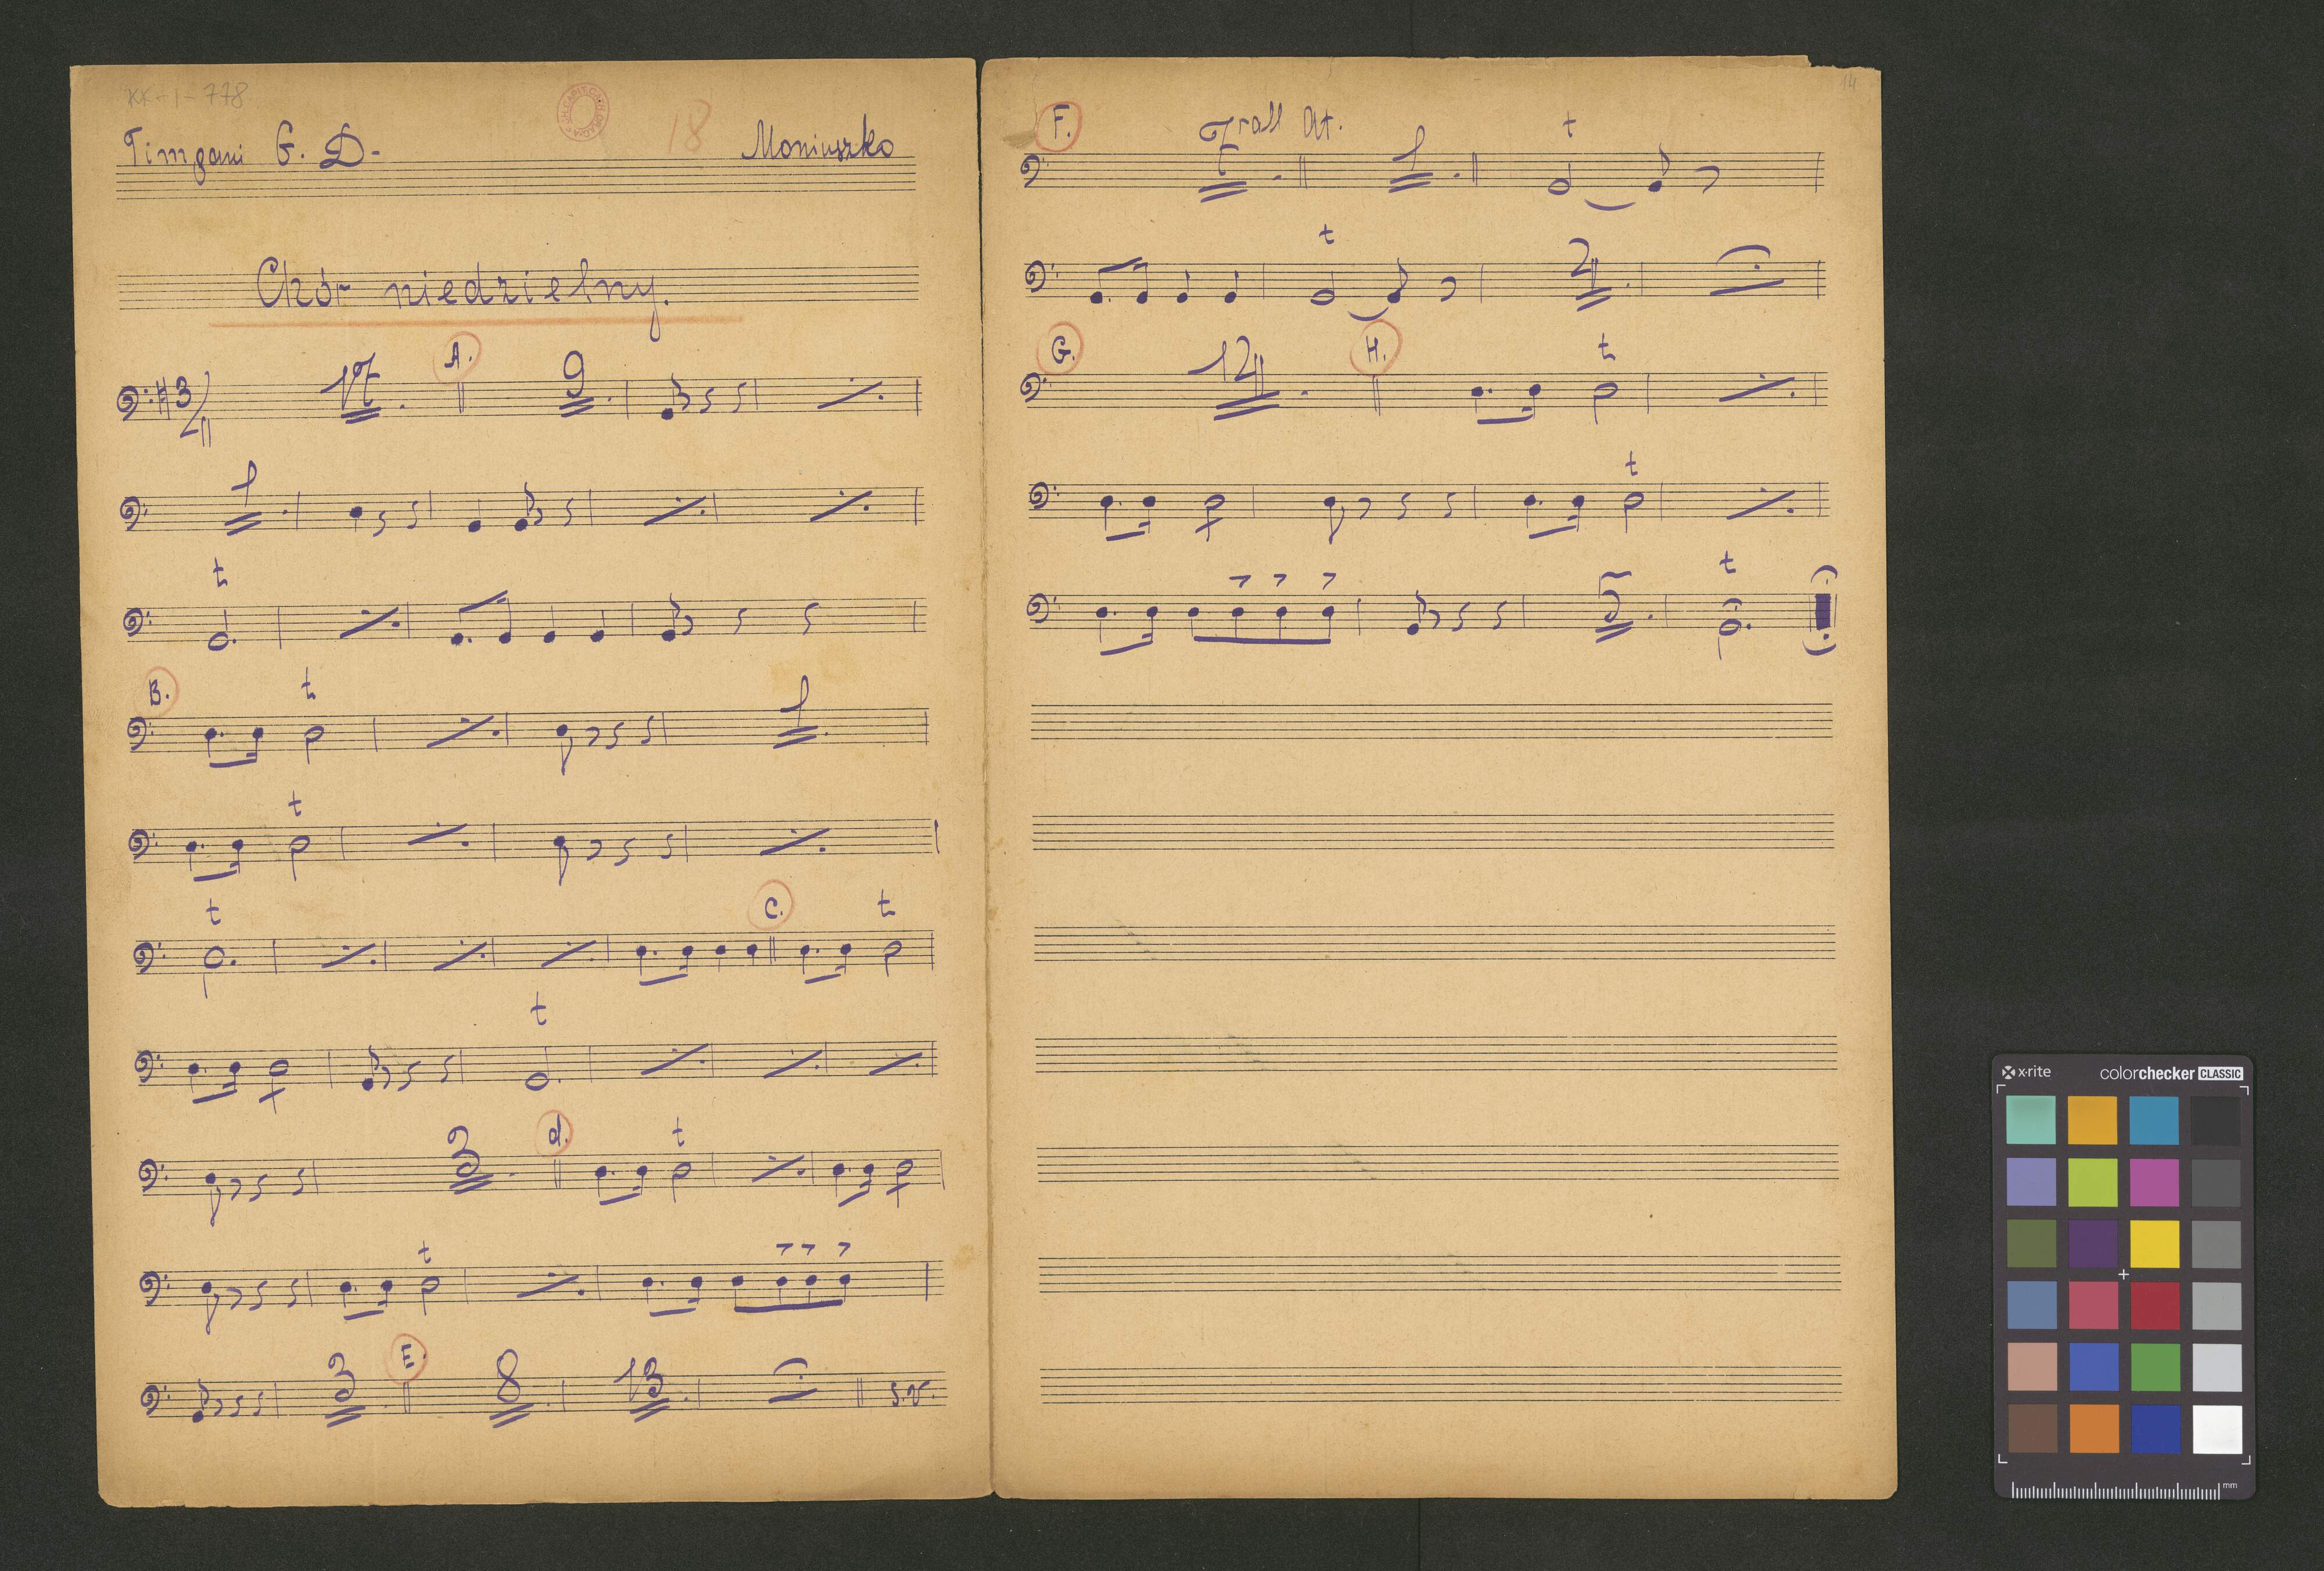 KK-I-778
Timpani G. D-
18
Moniuszko
Chór niedzielny.
3/4
17.
A.
9
1
t
B.
t
1
t
t
C.
t
t
3
d.
t
t
E.
3
8
13
s.v.
14
F.
7 rall At.
1
t
t
2
G.
12
H.
t
t
5
t
x-rite
colorchecker CLASSIC
mm